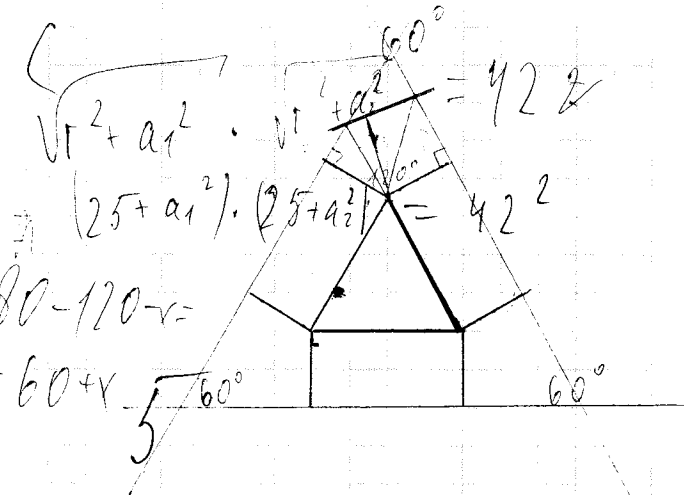 60°
√r²+a₁² · √r²+a₂² = 42
120°
(25+a₁²)·(25+a₂²) = 42²
80-120-r=
60+r
5
60°
60°